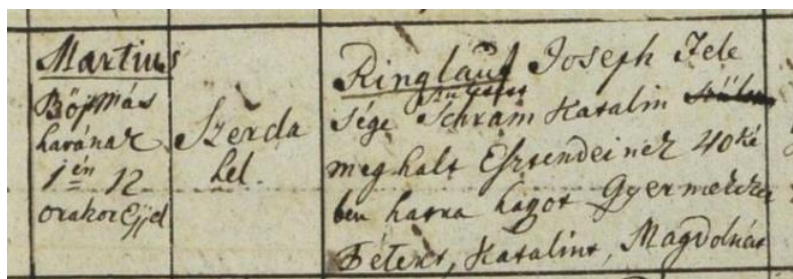 Martius
Böjtmás
havának
1én 12
orakor Ejjel
Szerda
hel
Ringlauf Joseph Fele
sége született Schram Katalin
meghalt Esztendeinek 40ké
ben hatra hagot Gyermekei
Petert, Katalint, Magdolnát